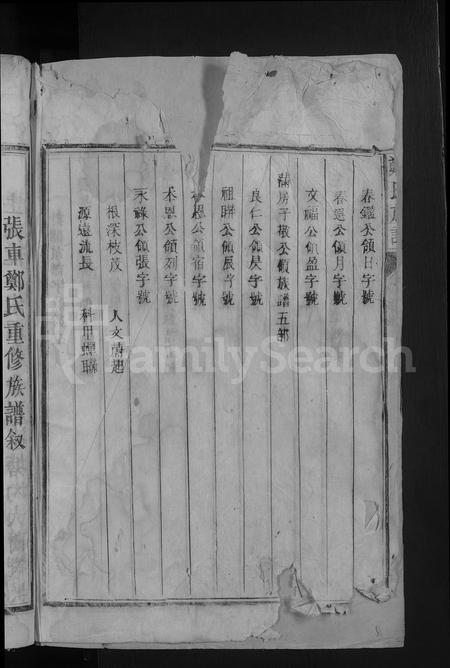 春鑑公領日字號
春選公領月字號
文福公領盈字號
滿房子敬公領族譜五部
良仁公領昃字號
祖聯公領辰字號
恩公領宿字號
本恩公領列字號
永祿公領張字號
根深枝茂 人文蔚起
源遠流長 科甲蟬聯
張車鄭氏重修族譜叙
FamilySearch